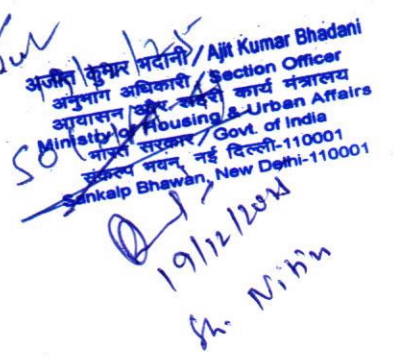 अजीत कुमार भदानी / Ajit Kumar Bhadani
अनुभाग अधिकारी / Section Officer
आवासन और शहरी कार्य मंत्रालय
Ministry of Housing & Urban Affairs
भारत सरकार / Govt. of India
संकल्प भवन, नई दिल्ली-110001
Sankalp Bhawan, New Delhi-110001
19/12/2025
Sh. Nitin